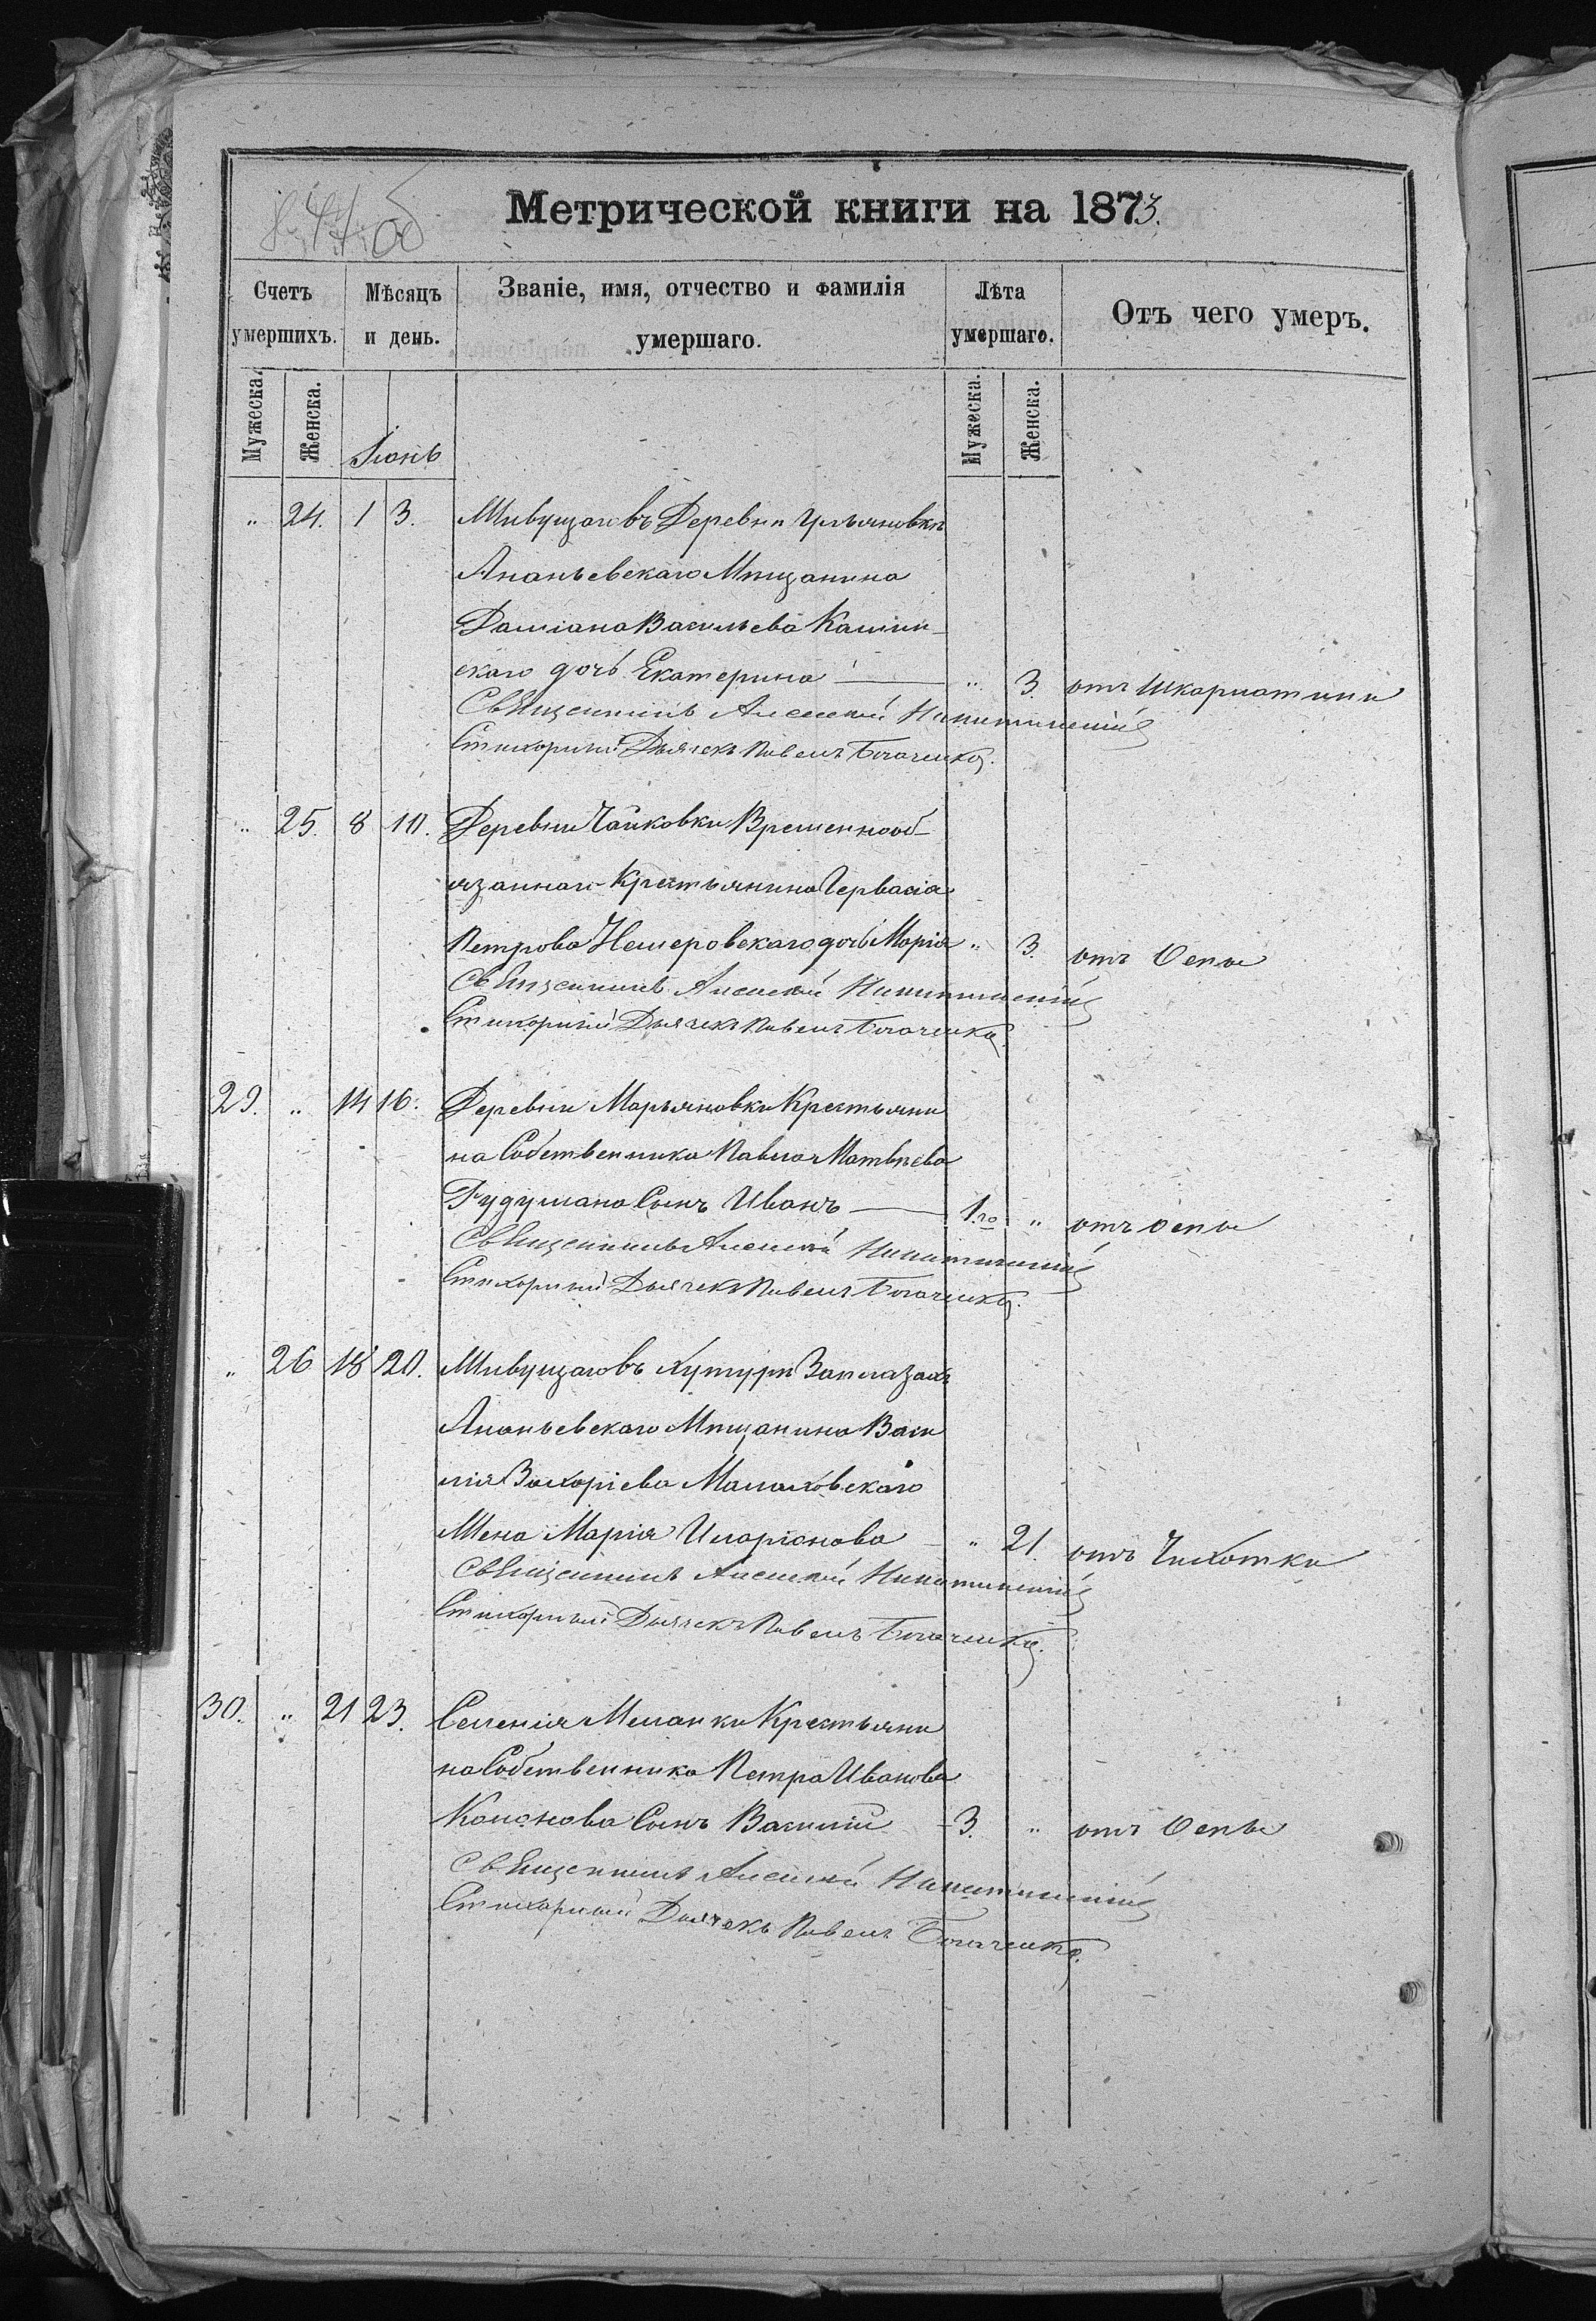 Метрической книги на 1873.
Счетъ умершихъ.
Мѣсяцъ и день.
Званіе, имя, отчество и фамилія умершаго.
Лѣта умершаго.
Отъ чего умеръ.
Мужеска. Женска. Іюнь Мужеска. Женска.
„ 24. 1 3. Живущаго въ Деревни Ульяновкѣ
Ананьевскаго Мѣщанина
Даміана Васильева Камин-
скаго дочь Екатерина — „ 3. отъ Шкарлатини
Священникъ Алексѣй Никитинскій
Стихарный Дьячекъ Павелъ Богаченко.
„ 25. 8 10. Деревни Чайковки Временнооб-
язаннаго Крестьянина Герваcія
Петрова Немеровскаго дочь Марія „ 3. отъ Оспы
Священникъ Алексѣй Никитинскій
Стихарный Дьячекъ Павелъ Богаченко.
29. „ 14 16. Деревни Марьяновки Крестьяни
на Собственника Павла Матвѣева
Гудумана Сынъ Иванъ — 1го „ отъ оспы
Священникъ Алексѣй Никитинскій
Стихарный Дьячекъ Павелъ Богаченко.
„ 26 18 20. Живущаго въ хуторѣ Заплазахъ
Ананьевскаго Мѣщанина Васи
лія Захаріева Малаховскаго
Жена Марія Иларіонова — „ 21. отъ Чихотки
Священникъ Алексѣй Никитинскій
Стихарный Дьячекъ Павелъ Богаченко.
30. „ 21 23. Селенія Меланки Крестьяни
на Собственника Петра Иванова
Кононова Сынъ Василій - 3. „ отъ Оспы
Священникъ Алексѣй Никитинскій
Стихарный Дьячекъ Павелъ Богаченко.